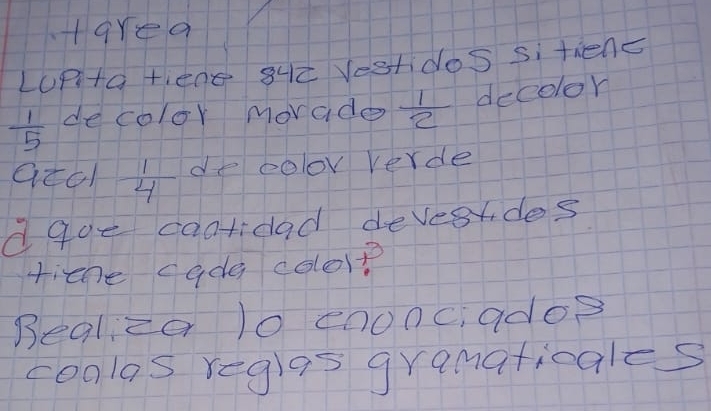 tarea
Lupita tiene 842 vestidos si tiene
1/5 de color morado 1/2 decolor
azul 1/4 de color verde
¿que cantidad devestidos
tiene cada color?
Realiza lo enonciados
conlas reglas gramaticales